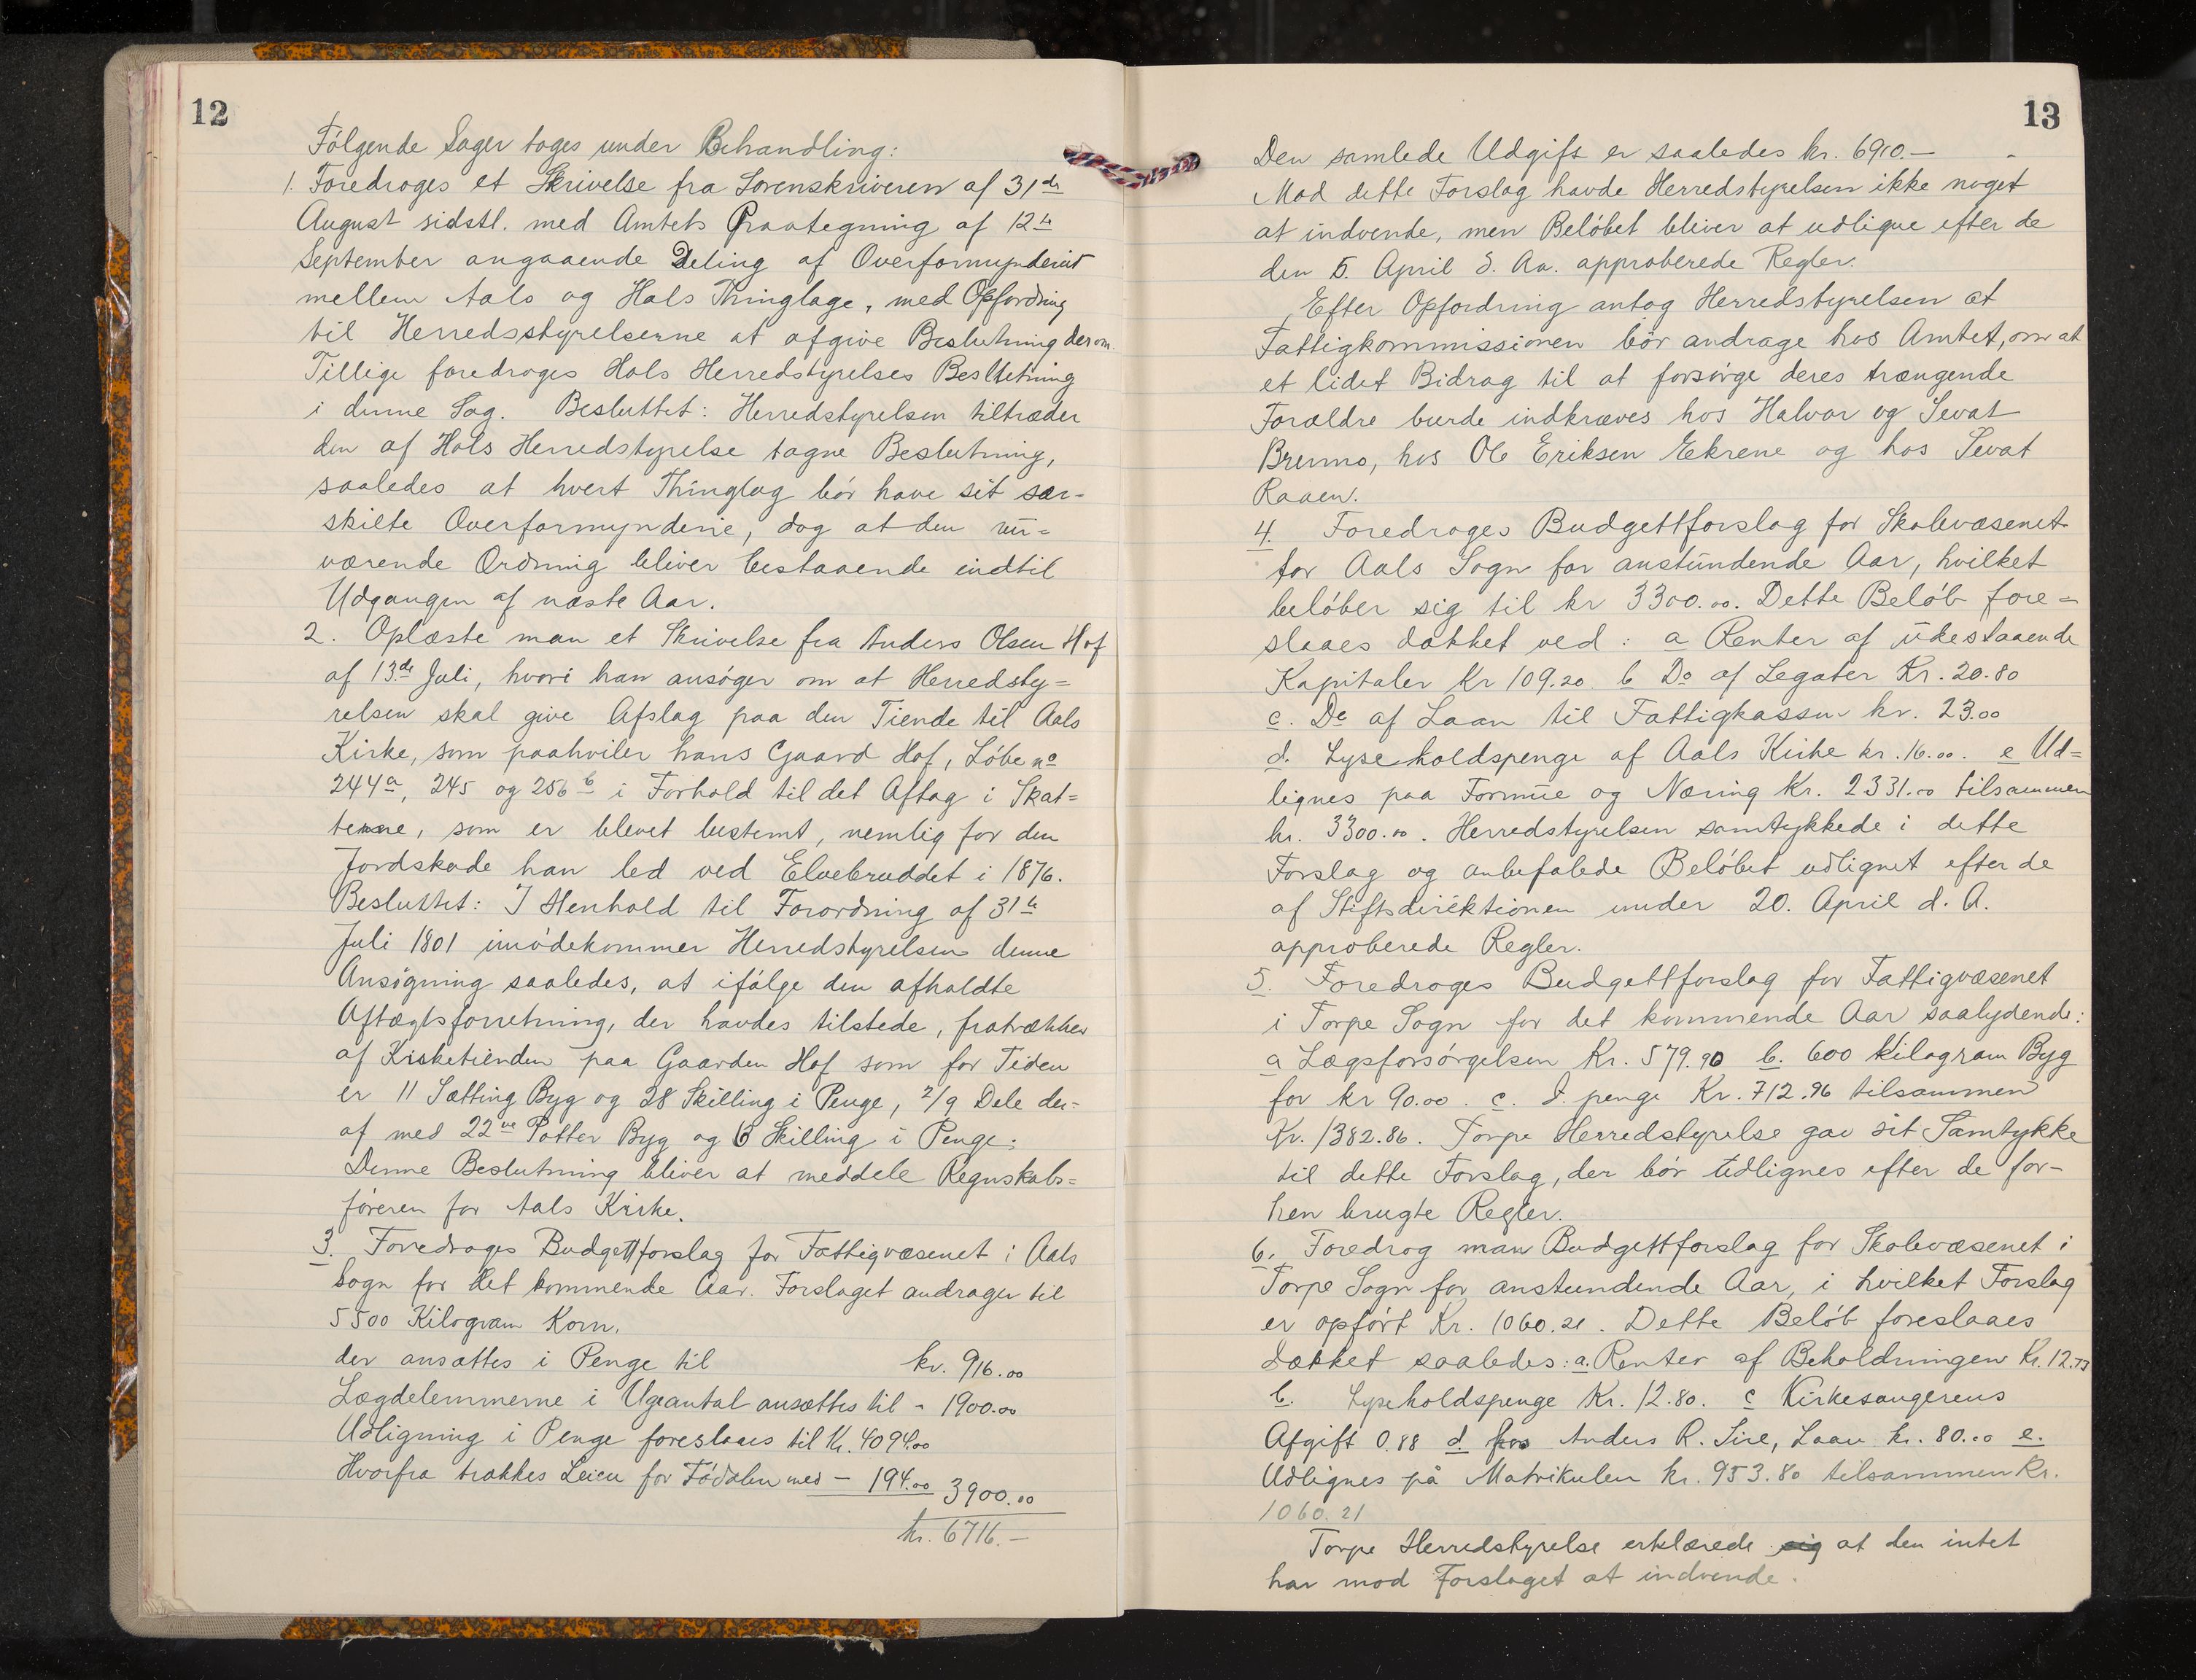 12
Følgende Sager toges under Behandling:
1. Foredroges et Skrivelse fra Sorenskriveren af 31de
August sidstl. med Amtets Paategning af 12te
September angaaende Deling af Overformynderiet
mellem Aals og Hols Thinglage, med Opfordring
til Herredsstyrelserne at afgive Beslutning derom.
Tillige foredroges Hols Herredstyrelses Beslutning
i denne Sag. Besluttet: Herredstyrelsen tiltræder
den af Hols Herredstyrelse tagne Beslutning,
saaledes at hvert Thinglag bør have sit sær-
skilte Overformynderie, dog at den nu-
værende Ordning bliver bestaaende indtil
Udgangen af næste Aar.
2. Oplæste man et Skrivelse fra Anders Olsen Hof
af 13de Juli, hvori han ansøger om at Herredsty=
relsen skal give Afslag paa den Tiende til Aals
Kirke, som paahviler hans Gaard Hof, Løbe no
244a, 245 og 256b i Forhold til det Aftag i Skat=
terne, som er blevet bestemt, nemlig for den
Jordskade han led ved Elvebruddet i 1876.
Besluttet: I Henhold til Forordning af 31te
Juli 1801 imødekommer Herredstyrelsen denne
Ansøgning saaledes, at ifølge den afholdte
Aftægtsforretning, der havdes tilstede, fratrækkes
af Kirketienden paa Gaarden Hof som for Tiden
er 11 Sætting Byg og 28 Skilling i Penge, 2/9 Dele der=
af med 22ve Potter Byg og 6 Skilling i Penge.
Denne Beslutning bliver at meddele Regnskabs=
føreren for Aals Kirke.
3. Foredroges Budgettforslag for Fattigvæsenet i Aals
Sogn for det kommende Aar. Forslaget andrager til
5500 Kilogram Korn,
der ansættes i Penge til kr. 916.00
Lægdelemmerne i Ugeantal ansættes til - 1900.00
Udligning i Penge foreslaaes til Kr. 4094.00
Hvorfra trækkes Leien for Fødalen med - 194.00 3900.00
kr. 6716.-
13
Den samlede Udgift er saaledes kr. 6910.-
Mod dette Forslag havde Herredstyrelsen ikke noget
at indvende, men Beløbet bliver at udligne efter de
den 5. April d. Aa. approberede Regler.
Efter Opfordring antog Herredstyrelsen at
Fattigkommissionen bør andrage hos Amtet, om at
et lidet Bidrag til at forsørge deres trængende
Forældre burde indkræves hos Halvor og Sevat
Brenno, hos Ole Eriksen Ekrene og hos Sevat
Raaen.
4. Foredroges Budgettforslag for Skolevæsenet
for Aals Sogn for anstundende Aar, hvilket
beløber sig til kr 3300.00. Dette Beløb fore=
slaaes dækket ved: a Renter af udestaaende
Kapitaler Kr 109.20 b Do af Legater Kr. 20.80
c. Do af Laan til Fattigkassen kr. 23.00
d. Lyseholdspenge af Aals Kirke kr. 16.00. e Ud=
lignes paa Formue og Næring Kr. 2331.00 tilsammen
kr. 3300.00. Herredstyrelsen samtykkede i dette
Forslag og anbefalede Beløbet udlignet efter de
af Stiftsdirektionen under 20. April d. A.
approberede Regler.
5. Foredroges Budgettforslag for Fattigvæsenet
i Torpe Sogn for det kommende Aar saalydende:
a Lægsforsørgelsen Kr. 579.90 b. 600 Kilogram Byg
for kr 90.00. c. I penge Kr. 712.96 tilsammen
Kr. 1382.86. Torpe Herredstyrelse gav sit Samtykke
til dette Forslag, der bør udlignes efter de for-
hen brugte Regler.
6. Foredrog man Budgettforslag for Skolevæsenet i
Torpe Sogn for anstundende Aar, i hvilket Forslag
er opført Kr. 1060.21. Dette Beløb foreslaaes
dækket saaledes: a. Renter af Beholdningen Kr. 12.73
b. Lyseholdspenge Kr. 12.80. c Kirkesangerens
Afgift 0.88 d. hos Anders R. Sire, Laan kr. 80.00 e.
Udlignes på Matrikulen kr. 953.80 tilsammen Kr.
1060.21
Torpe Herredstyrelse erklærede sig at den intet
har mod Forslaget at indvende.